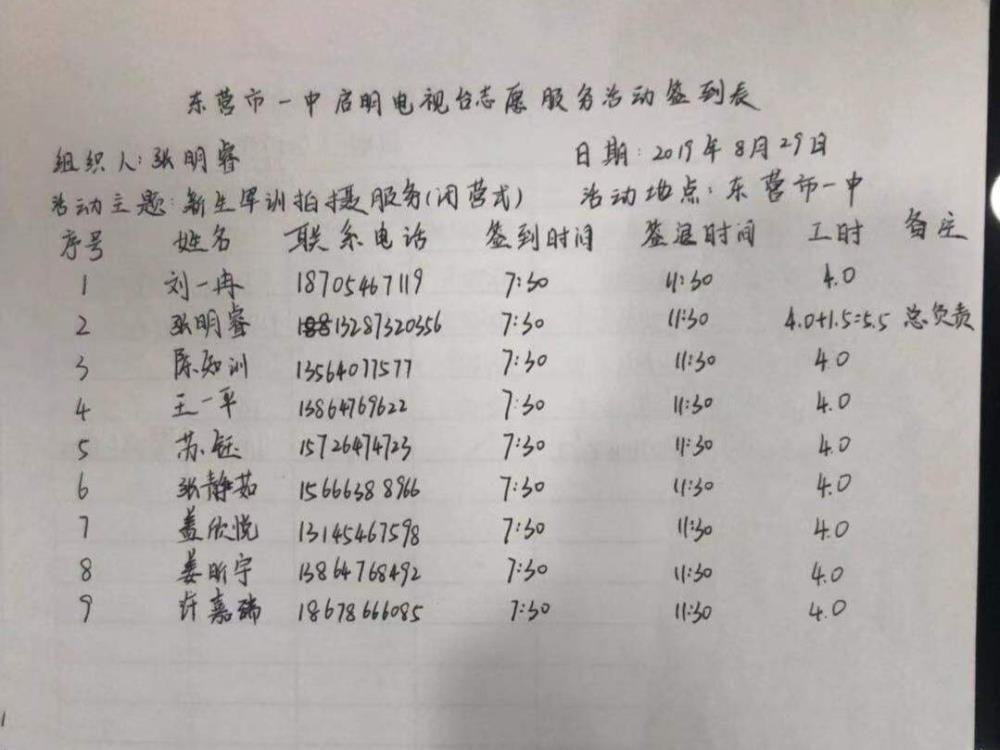 东营市一中启明电视台志愿服务活动签到表
组织人:张明睿 日期:2019年8月29日
活动主题:新生军训拍摄服务(闭营式) 活动地点:东营市一中
序号 姓名 联系电话 签到时间 签退时间 工时 备注
1 刘一冉 18705467119 7:30 11:30 4.0
2 张明睿 13287320356 7:30 11:30 4.0+1.5=5.5 总负责
3 陈知训 13564077577 7:30 11:30 4.0
4 王一平 13864769622 7:30 11:30 4.0
5 苏钰 15726474723 7:30 11:30 4.0
6 张静茹 15666388966 7:30 11:30 4.0
7 盖欣悦 13145467598 7:30 11:30 4.0
8 姜昕宇 13864768492 7:30 11:30 4.0
9 许嘉瑞 18678666085 7:30 11:30 4.0